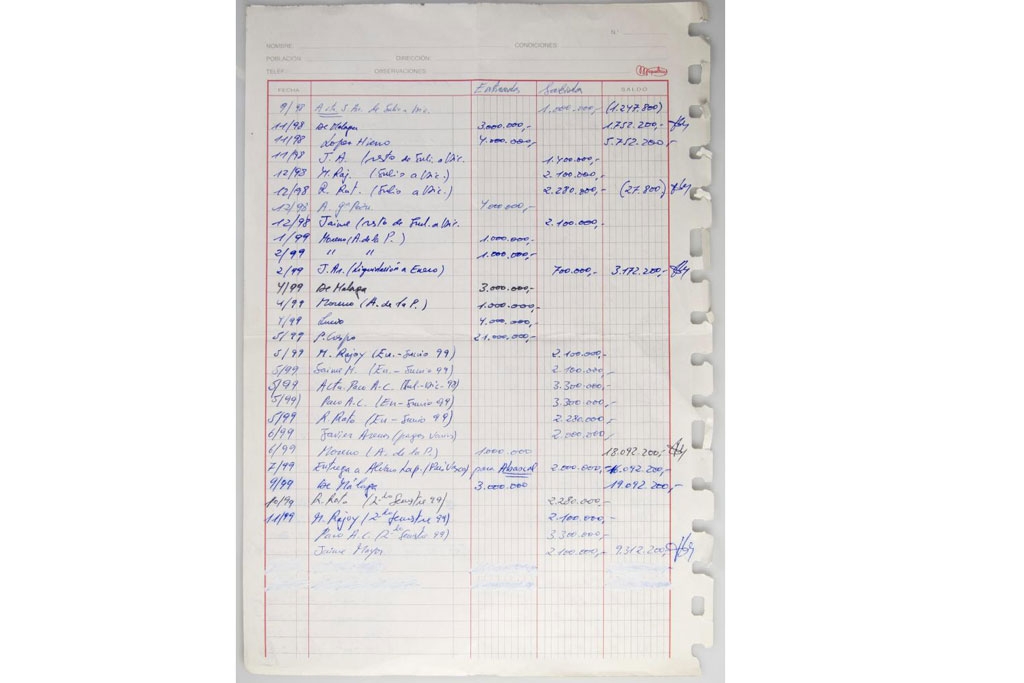 Nº
NOMBRE CONDICIONES
POBLACIÓN DIRECCIÓN
TELEF. OBSERVACIONES
FECHA Entradas Salidas SALDO
9/98 1.000.000,- (1.247.800)
11/98 De Málaga 3.000.000,- 1.752.200,-
11/98 López Hierro 4.000.000,- 5.752.200,-
11/98 J. A. (resto de Jul. a Dic. 1.400.000,-
12/98 M. Raj. (Julio a Dic.) 2.100.000,-
12/98 R. Rat. (Julio a Dic.) 2.280.000,- (27.800)
12/98 A. 4.000.000,-
12/98 Jaime (resto de Jul. a Dic. 2.100.000,-
1/99 Moreno (A. de la P.) 1.000.000,-
2/99 " " 1.000.000,-
2/99 J. Ar. (Liquidación a Enero) 700.000,- 3.172.200,-
4/99 De Málaga 3.000.000,-
4/99 Moreno (A. de la P.) 1.000.000,-
4/99 4.000.000,-
5/99 P. Crespo 21.000.000,-
5/99 M. Rajoy (En.-Junio 99) 2.100.000,-
5/99 Jaime M. (En.-Junio 99) 2.100.000,-
5/99 Paco A.C. (Jul-Dic-98) 3.300.000,-
5/99 Paco A.C. (En-Junio 99) 3.300.000,-
5/99 R. Rato (En-Junio 99) 2.280.000,-
6/99 Javier Arenas (pagos varios) 2.000.000,-
6/99 Moreno (A. de la P.) 1.000.000 18.092.200,-
7/99 Entrega a Lap. (País Vasco) para Abascal 2.000.000,- 16.092.200,-
9/99 De Málaga 3.000.000 19.092.200,-
10/99 R. Rato (2º Semestre 99) 2.280.000,-
11/99 M. Rajoy (2º Semestre 99) 2.100.000,-
Paco A.C. (2º Semestre 99) 3.300.000,-
Jaime Mayor 2.100.000,- 9.312.200